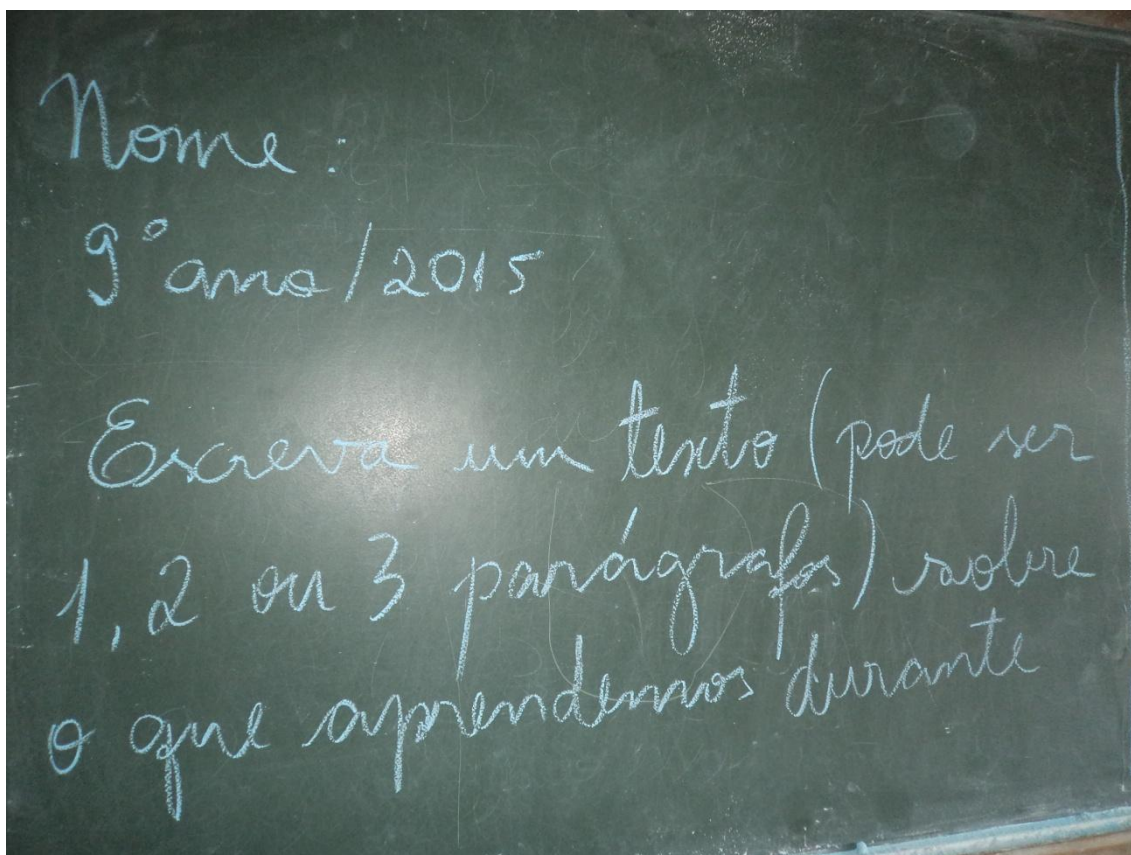 Nome:
9º ano/2015
Escreva um texto (pode ser
1, 2 ou 3 parágrafos) sobre
o que aprendemos durante